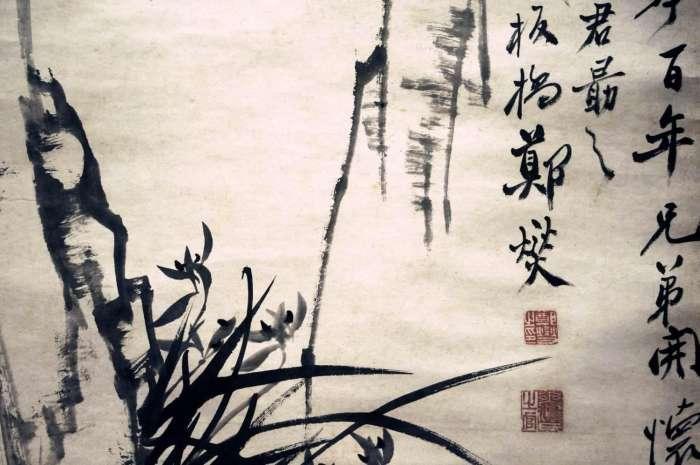 百年兄弟開懷
君勗之
板橋鄭燮